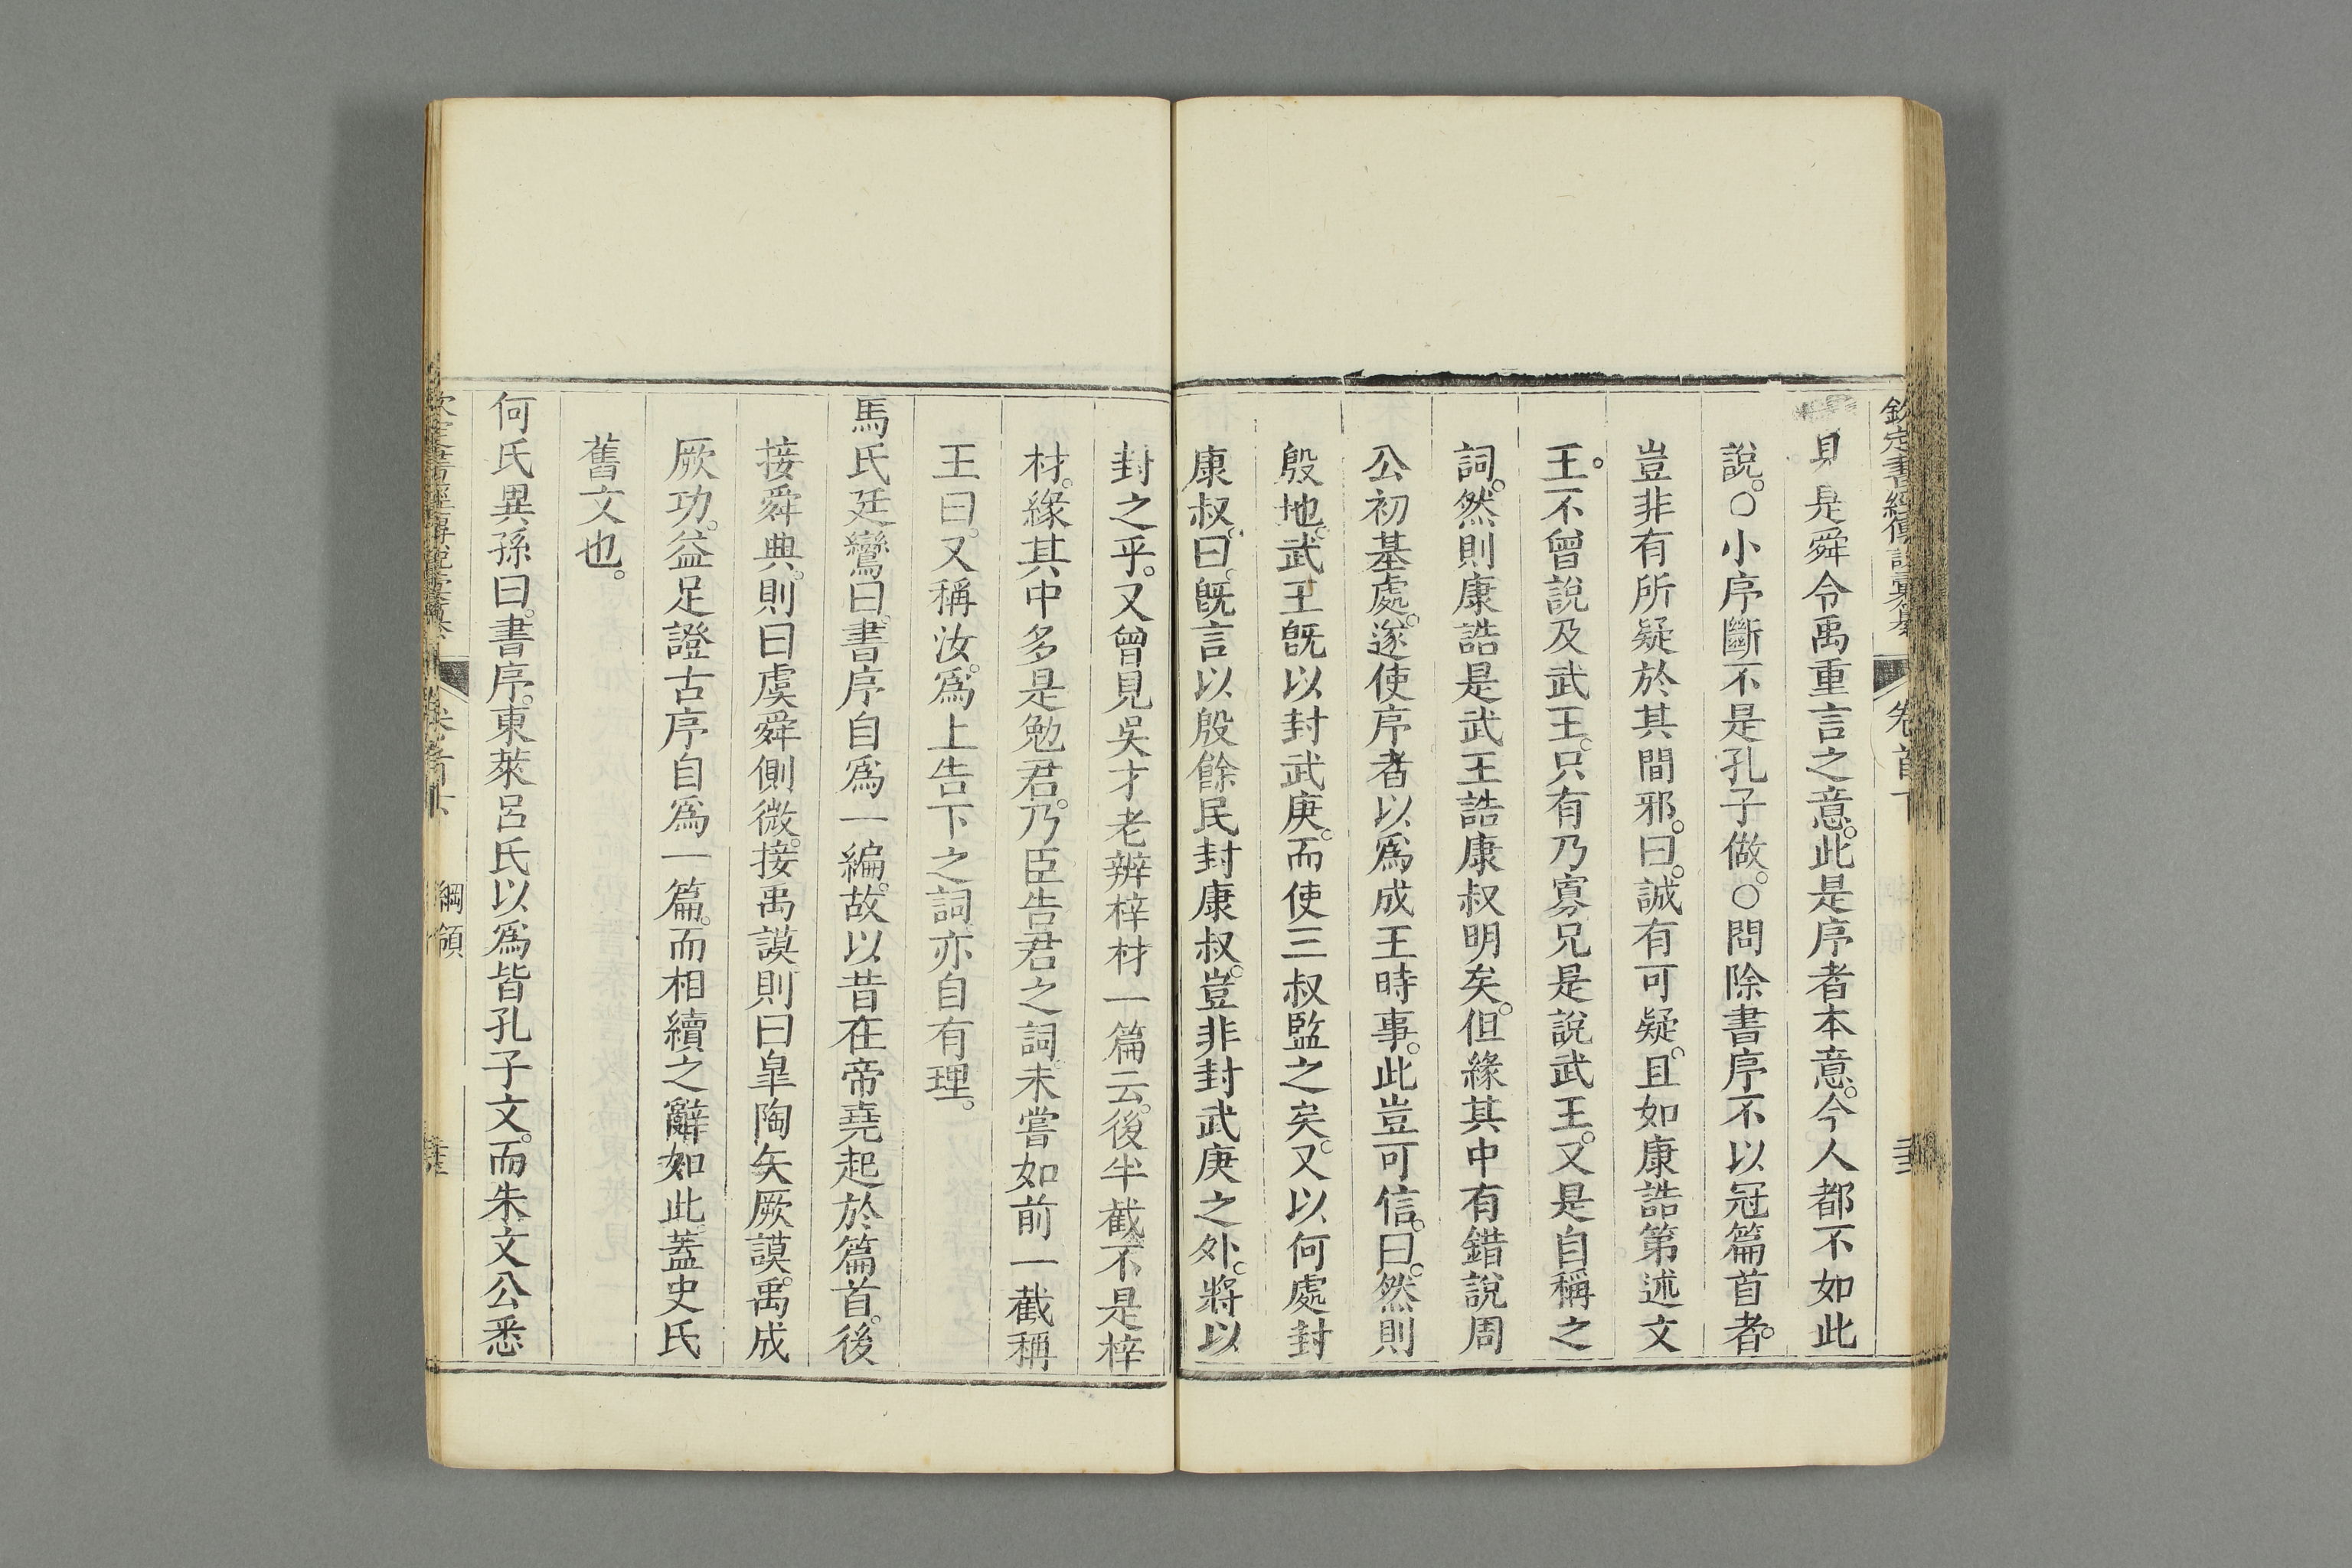 欽定書經傳說彙纂 卷首下
見是舜令禹重言之意。此是序者本意。今人都不如此
說。○小序斷不是孔子做。○問除書序不以冠篇首者。
豈非有所疑於其間邪。曰。誠有可疑。且如康誥第述文
王。不曾說及武王。只有乃寡兄是說武王。又是自稱之
詞。然則康誥是武王誥康叔明矣。但緣其中有錯說周
公初基處。遂使序者以爲成王時事。此豈可信。曰。然則
殷地。武王旣以封武庚。而使三叔監之矣。又以何處封
康叔。曰。旣言以殷餘民封康叔。豈非封武庚之外。將以
封之乎。又曾見吳才老辨梓材一篇云。後半截不是梓
材。緣其中多是勉君。乃臣告君之詞。未嘗如前一截稱
王曰。又稱汝。爲上告下之詞。亦自有理。
馬氏廷鸞曰。書序自爲一編。故以昔在帝堯起於篇首。後
接舜典。則曰虞舜側微。接禹謨則曰皐陶矢厥謨。禹成
厥功。益足證古序自爲一篇。而相續之辭如此蓋史氏
舊文也。
何氏異孫曰。書序。東萊呂氏以爲皆孔子文。而朱文公悉
綱領